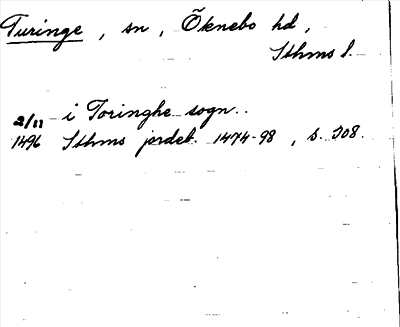 Turinge, sn, Öknebo hd,
Sthms l.
2/11 i Toringhe sogn..
1496 Sthms jordeb. 1474-98, s. 308.